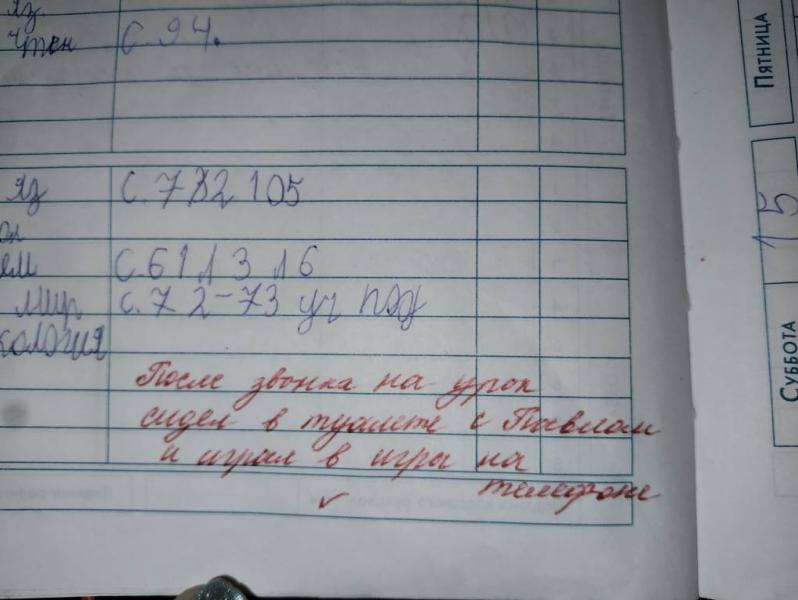 яз
Чтен с. 94.
яз с. 732 105
с. 61 13 16
мир с. 72-73 уч
кология
После звонка на урок
сидел в туалете с Павлом
и играл в игры на
телефоне
ПЯТНИЦА
15
СУББОТА